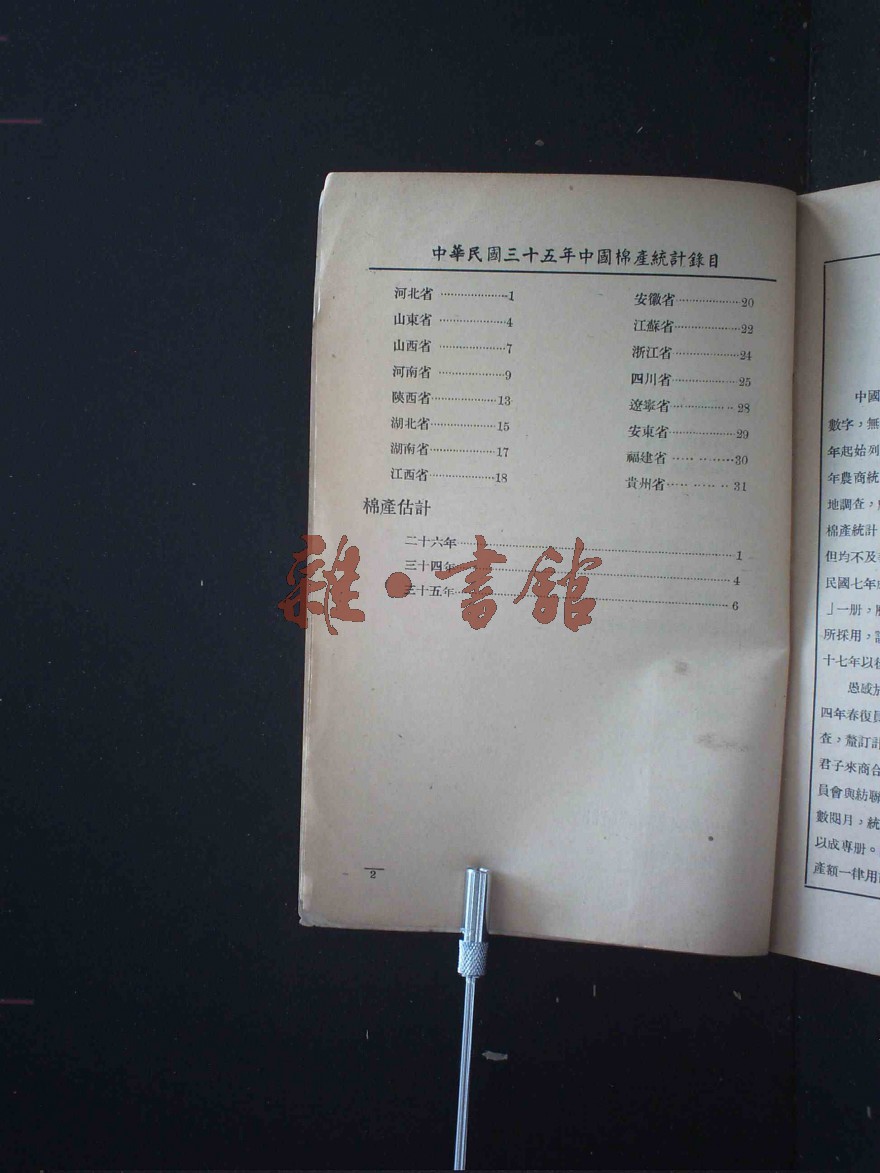 中華民國三十五年中國棉產統計錄目
河北省 ····················1
山東省 ····················4
山西省 ····················7
河南省 ····················9
陝西省 ····················13
湖北省 ····················15
湖南省 ····················17
江西省 ····················18
安徽省 ····················20
江蘇省 ····················22
浙江省 ····················24
四川省 ····················25
遼寧省 ····················28
安東省 ····················29
福建省 ····················30
貴州省 ····················31
棉產估計
二十六年 ····················1
三十四年 ····················4
三十五年 ····················6
2
雜·書館
中國
數字，無
年起始列
年農商統
地調查，
棉產統計
但均不及
民國七年
」一册，
所採用，
十七年以
愚感於
四年春復員
查，釐訂計
君子來商合
員會與紡聯
數閱月，統
以成專册。
產額一律用